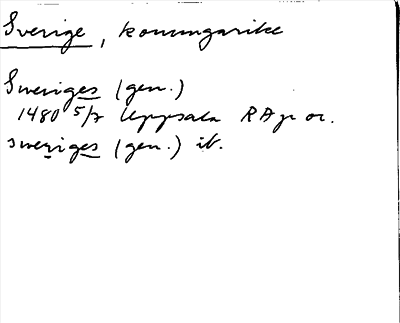 Sverige, konungarike
Sweriges (gen.)
1480 5/7 Uppsala RAp or.
sweriges (gen.) ib.